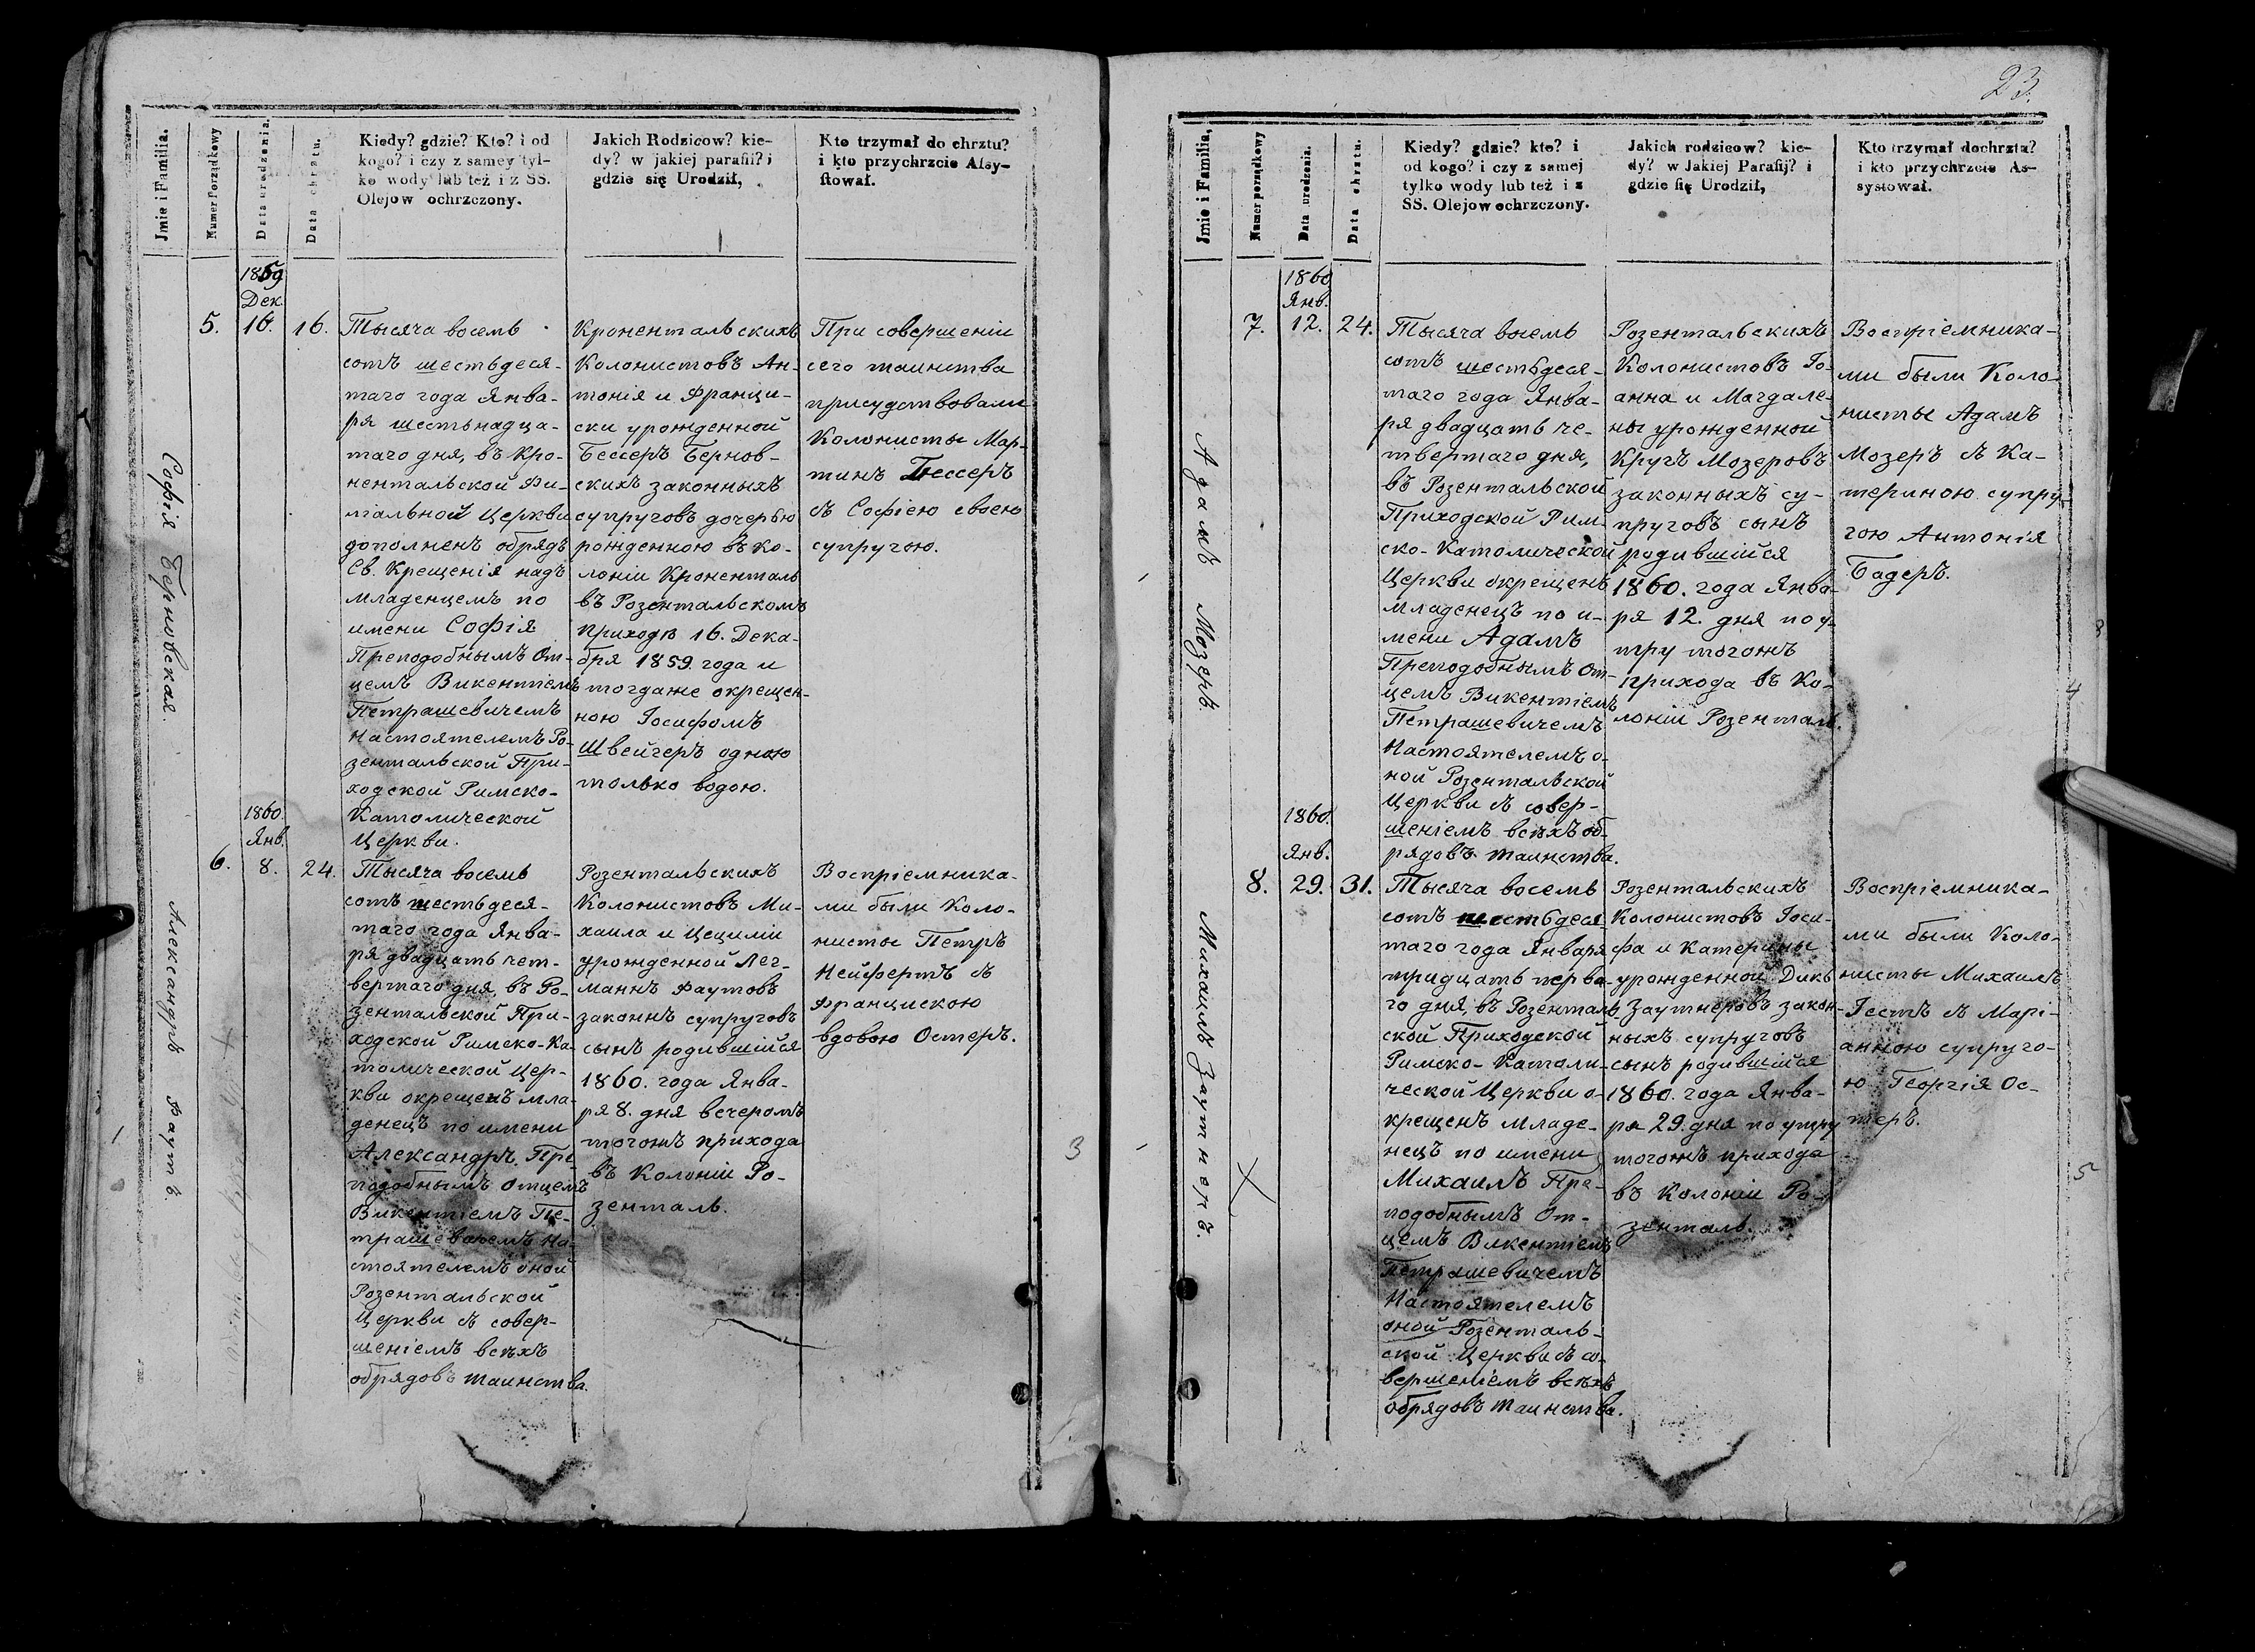 Jmie i Familia.
Numer Porządkowy
Data urodzenia.
Data chrztu.
Kiedy? gdzie? Kto? i od
kogo? i czy z samey tyl-
ko wody lub też i z SS.
Olejow ochrzczony.
Jakich Rodzicow? kie-
dy? w jakiej parafii? i
gdzie się Urodził,
Kto trzymał do chrztu?
i kto przychrzcie Assy-
stował.
Софія Берновская.
5.
1859
Дек.
16.
16.
Тысяча восемь
сотъ шестьдеся-
таго года Янва-
ря шестьнадца-
таго дня, въ Кро-
нентальской Фи-
ліальной Церкви
дополненъ обрядъ
Св. Крещенія надъ
младенцемъ по
имени Софія
Преподобнымъ От-
цемъ Викентіемъ
Петрашевичемъ
Настоятелемъ Ро-
зентальской При-
ходской Римско-
Католической
Церкви.
Кронентальскихъ
Колонистовъ Ан-
тонія и Франци-
ски урожденной
Бессеръ Бернов-
скихъ законныхъ
супруговъ дочерью
рожденною въ Ко-
лоніи Кроненталь
въ Розентальскомъ
приходѣ 16. Дека-
бря 1859. года и
тогдаже окрещен-
ною Іосифомъ
Швейгеръ одною
только водою.
При совершеніи
сего таинства
присудствовали
Колонисты Мар-
тинъ Бессеръ
съ Софіею своею
супругою.
Александръ Фаутъ.
6.
1860.
Янв.
8.
24.
Тысяча восемь
сотъ шестьдеся-
таго года Янва-
ря двадцать чет-
вертаго дня, въ Ро-
зентальской При-
ходской Римско-Ка-
толической Цер-
кви окрещенъ мла-
денецъ по имени
Александръ. Пре-
подобнымъ Отцемъ
Викентіемъ Пе-
трашевичемъ На-
стоятелемъ оной
Розентальской
Церкви съ совер-
шеніемъ всѣхъ
обрядовъ таинства.
Розентальскихъ
Колонистовъ Ми-
хаила и Цециліи
урожденной Лег-
манъ Фаутовъ
законнъ супруговъ
сынъ родившійся
1860. года Янва-
ря 8. дня вечеромъ
тогожъ прихода
въ Колоніи Ро-
зенталь.
Воспріемника-
ми были Коло-
нисты Петръ
Нейфертъ съ
Францискою
вдовою Остеръ.
3
23.
Jmie i Familia,
Numer porządkowy
Data urodzenia.
Data chrztu.
Kiedy? gdzie? kto? i
od kogo? i czy z samej
tylko wody lub też i z
SS. Olejow ochrzczony.
Jakich rodzicow? kie-
dy? w Jakiej Parafij? i
gdzie się Urodził,
Kto trzymał dochrztu?
i kto przychrzcie As-
systował.
Адамъ Мозеръ.
7.
1860
Янв.
12.
24.
Тысяча восемь
сотъ шестьдеся-
таго года Янва-
ря двадцать че-
твертаго дня,
въ Розентальской
Приходской Рим-
ско-Католической
Церкви окрещенъ
младенецъ по и-
мени Адамъ
Преподобнымъ От-
цемъ Викентіемъ
Петрашевичемъ
Настоятелемъ о-
ной Розентальской
Церкви съ совер-
шеніемъ всѣхъ об-
рядовъ таинства.
Розентальскихъ
Колонистовъ Іо-
анна и Магдале-
ны урожденной
Кругъ Мозеровъ
законныхъ су-
пруговъ сынъ
родившійся
1860. года Янва-
ря 12. дня по у-
тру тогожъ
прихода въ Ко-
лоніи Розенталь.
Воспріемника-
ми были Коло-
нисты Адамъ
Мозеръ съ Ка-
териною супру-
гою Антонія
Бадеръ.
4
Михаилъ Заутнеръ.
8.
1860.
Янв.
29.
31.
Тысяча восемь
сотъ шестьдеся-
таго года Января
тридцать перва-
го дня, въ Розенталь-
ской Приходской
Римско-Католи-
ческой Церкви о-
крещенъ младе-
нецъ по имени
Михаилъ Пре-
подобнымъ От-
цемъ Викентіемъ
Петрашевичемъ
Настоятелемъ
оной Розенталь-
ской Церкви съ со-
вершеніемъ всѣхъ
обрядовъ таинства.
Розентальскихъ
Колонистовъ Іоси-
фа и Катерины
урожденной Дикъ
Заутнеровъ закон-
ныхъ супруговъ
сынъ родившійся
1860. года Янва-
ря 29. дня по утру
тогожъ прихода
въ Колоніи Ро-
зенталь.
Воспріемника-
ми были Коло-
нисты Михаилъ
Гестъ съ Марі-
анною супруго-
ю Георгія Ос-
теръ.
5